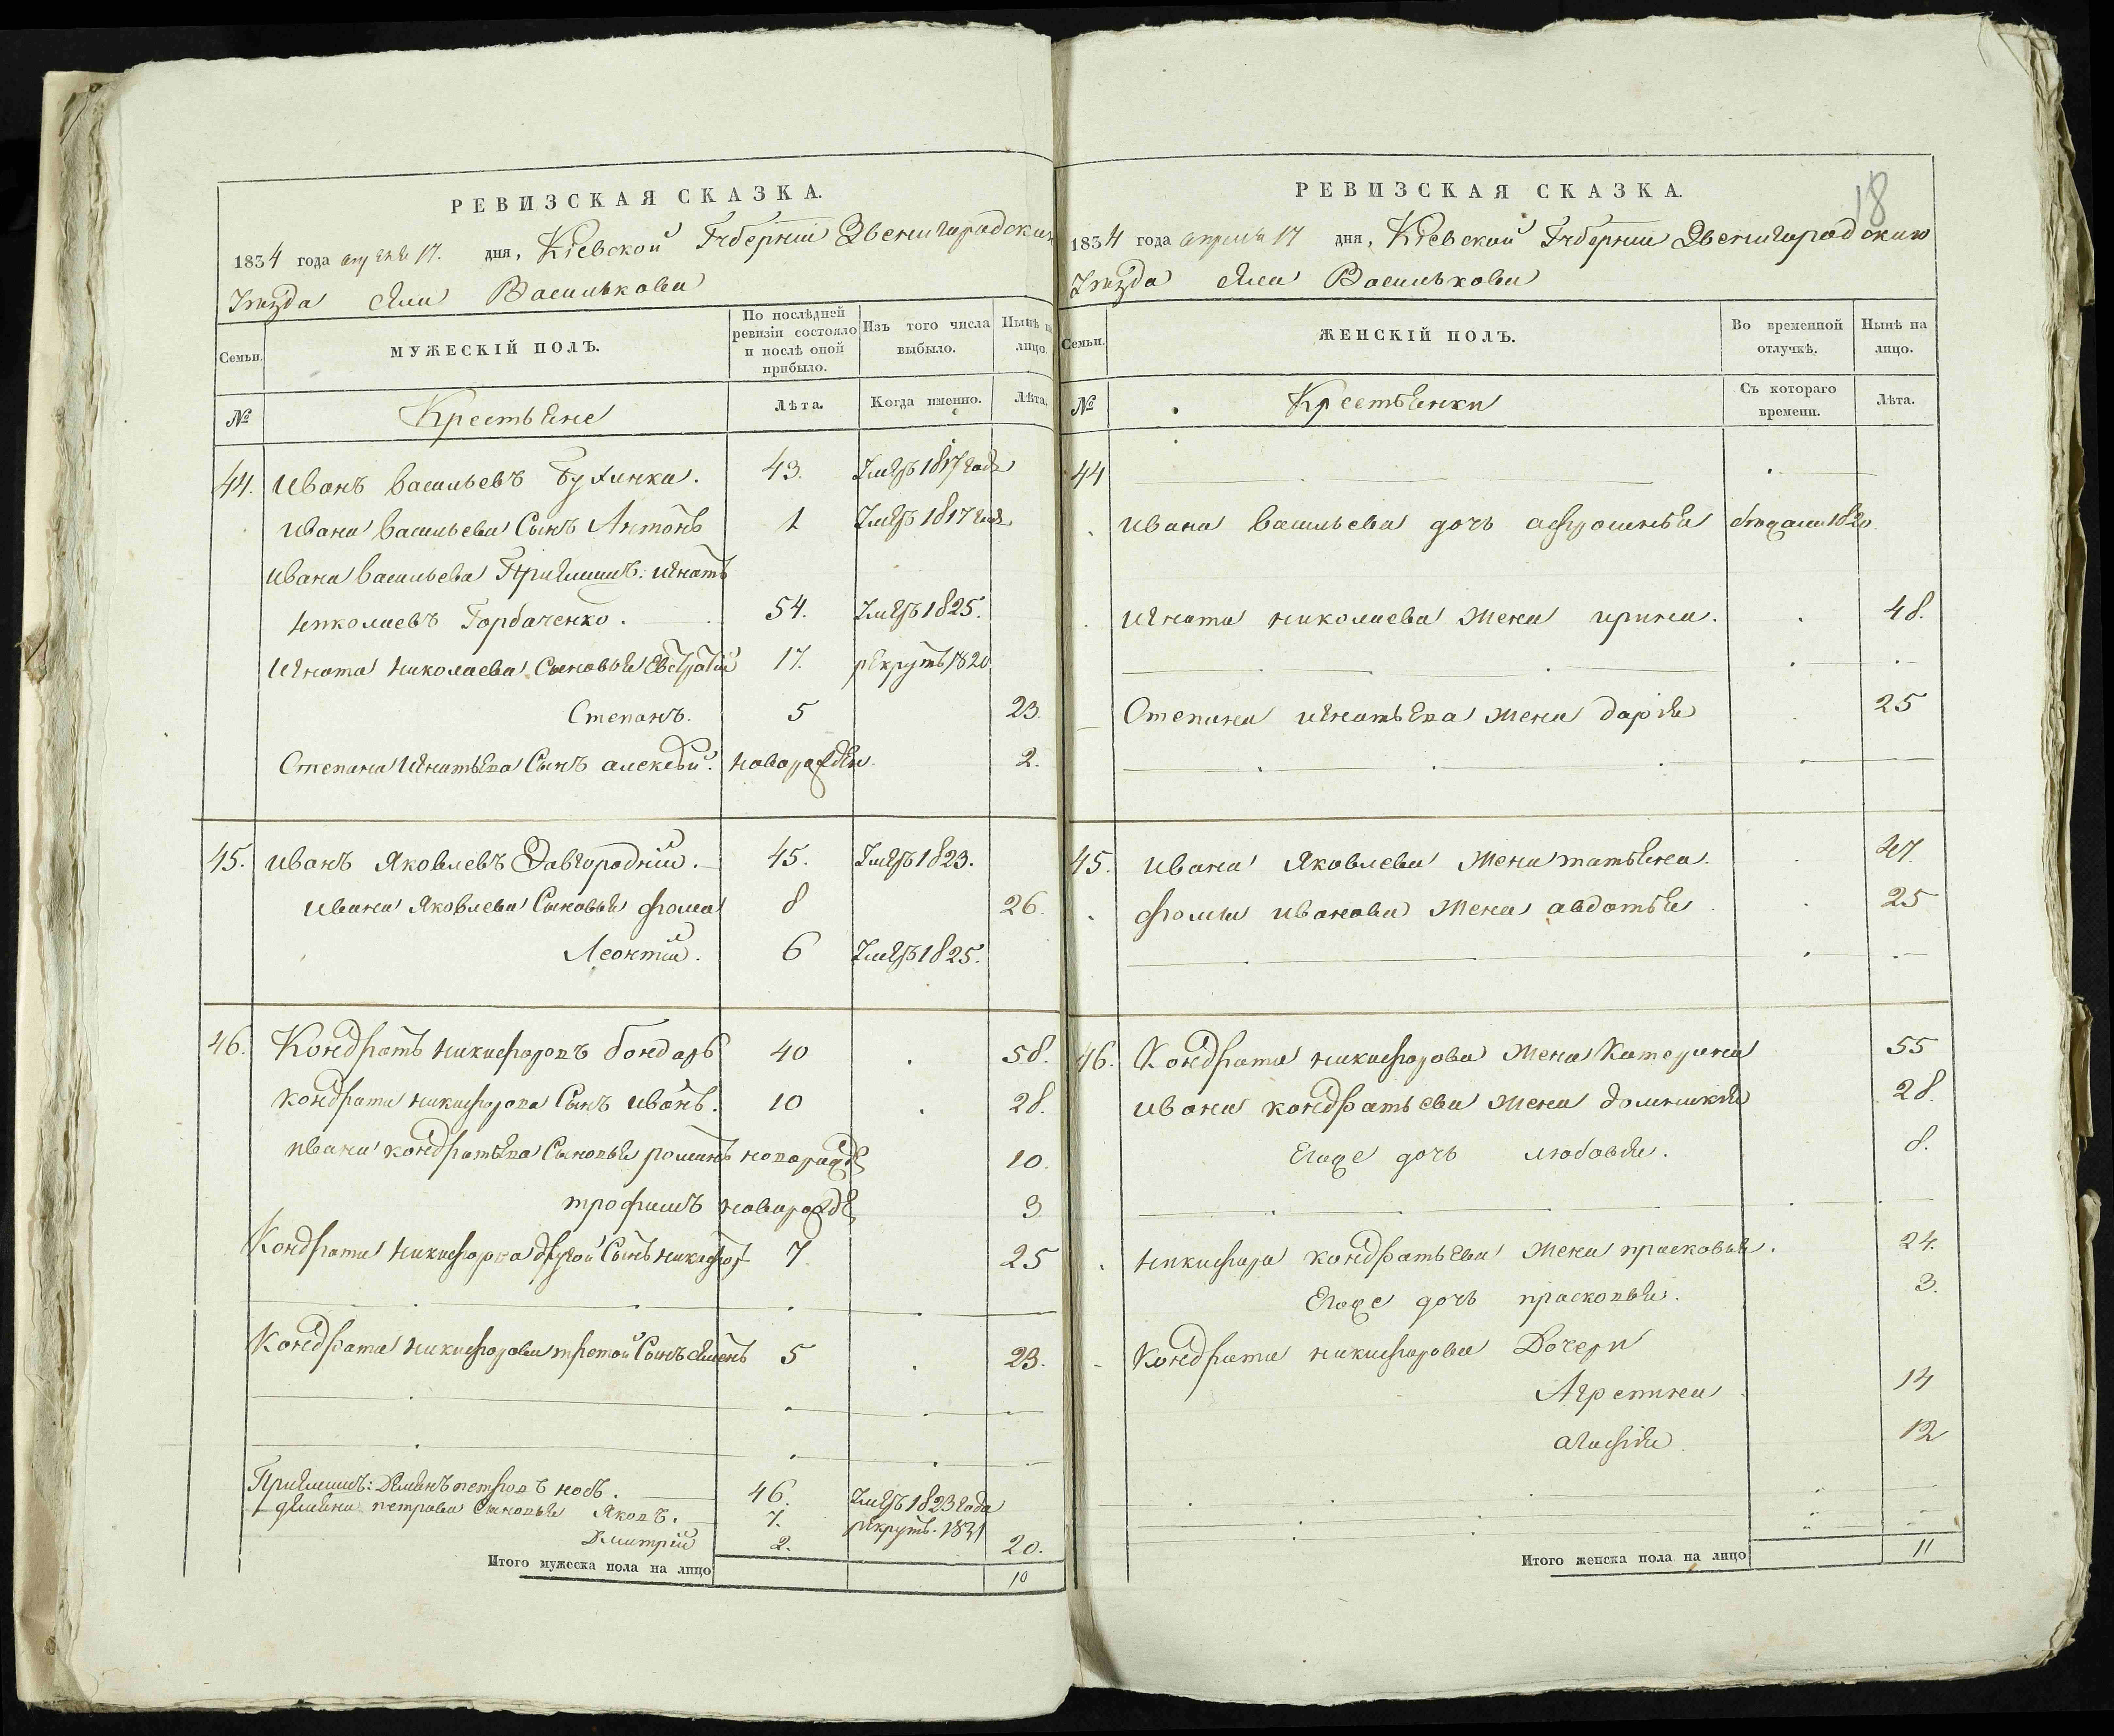 РЕВИЗСКАЯ СКАЗКА.
1834 года апреля 17. дня, Кіевской Губерніи Звенигородскаго
Уезда села Василькова
Семьи.
МУЖЕСКІЙ ПОЛЪ.
По послѣдней ревизіи состояло и послѣ оной прибыло.
Изъ того числа выбыло.
Нынѣ на лицо.
№
Крестьяне
Лѣта.
Когда именно.
Лѣта.
44. Иванъ васильевъ 43. Умеръ 1817 года
Ивана васильева Сынъ Антонъ 1 Умеръ 1817 года
Ивана васильева Приймышъ: игнатъ
николаевъ Горбаченко. 54. Умеръ 1825.
Игната николаева Сыновья Евстратій 17. рекрутъ 1820
Степанъ. 5 23.
Степана Игнатьева Сынъ алексѣй. новорожден. 2.
45. иванъ Яковлевъ Завгородній. 45. Умеръ 1823.
ивана Яковлева Сыновья фома 8 26.
Леонтій. 6 Умеръ 1825.
46. Кондратъ никифоровъ бондарь 40 58.
кондрата никифорова Сынъ иванъ. 10 28.
ивана кондратьева Сыновья романъ новорожде 10.
трофимъ новорожде 3
Кондрата никифорова другой Сынъ никифоръ 7 25
Кондрата никифорова третой Сынъ семенъ 5 23.
Приймышъ: Демянъ петровъ 46. Умеръ 1823 года
демяна петрова Сыновья Яковъ. 7. рекрутъ. 1831
Дмитрій 2. 20.
Итого мужеска пола на лицо 10
РЕВИЗСКАЯ СКАЗКА.
18
1834 года апреля 17 дня, Кіевской Губерніи Звенигородскаго
Уезда села Василькова
Семьи.
ЖЕНСКІЙ ПОЛЪ.
Во временной отлучкѣ.
Нынѣ на лицо.
№
Крестьянки
Съ котораго времени.
Лѣта.
44
ивана васильева дочь афросинья 1820.
Игната николаева жена ирина. 48.
Степана игнатьева жена дарья 25
45. ивана Яковлева жена татьяна. 47.
фомы иванова жена авдотья 25
46. Кондрата никифорова жена Катерина 55
ивана кондратьева жена домникия 28.
Егоже дочь любовья. 8.
никифора кондратьева жена прасковья. 24.
Егоже дочь прасковья. 3.
Кондрата никифорова Дочери
Агрепина 14
агафия 12
Итого женска пола на лицо 11